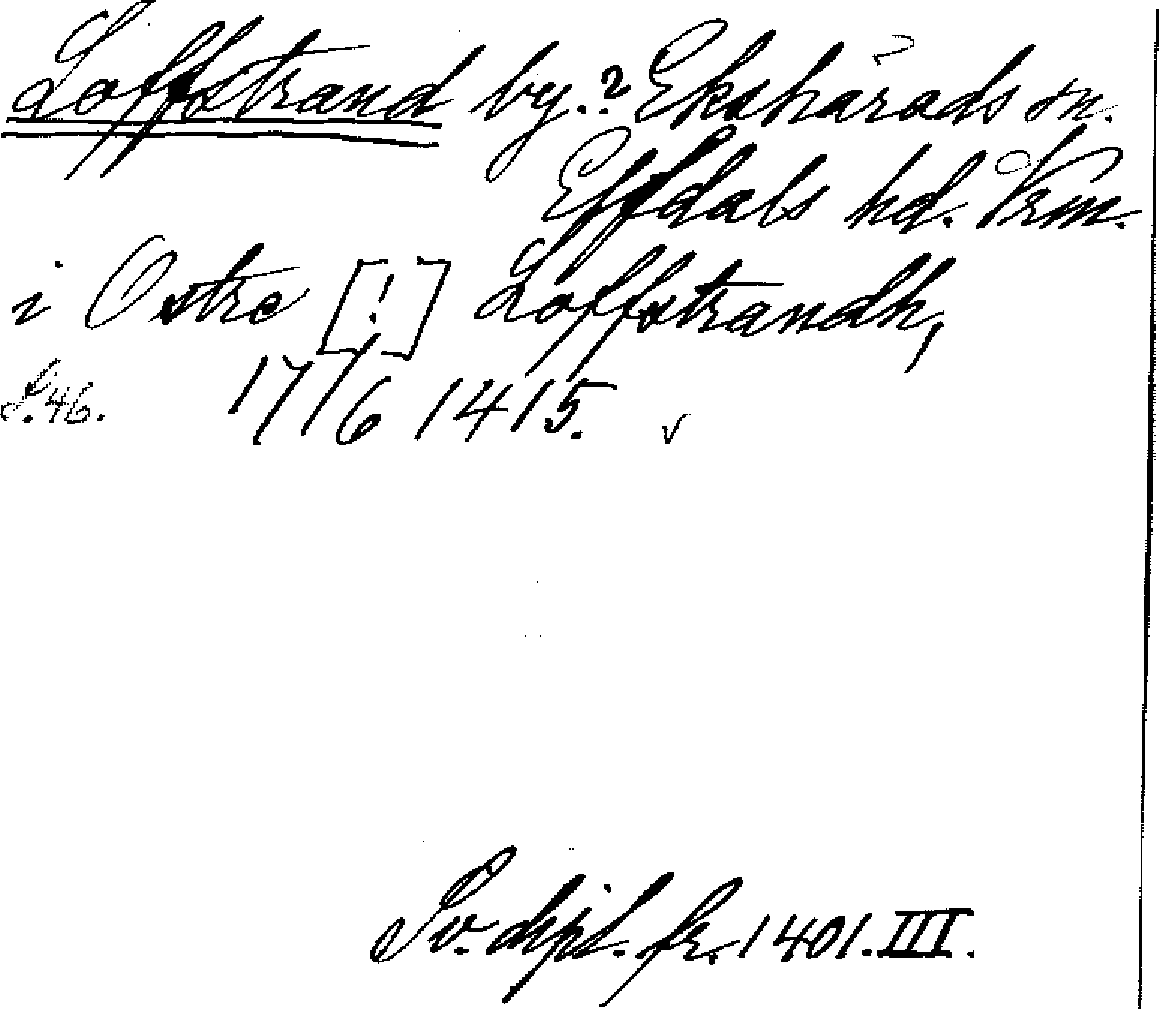 Loffstrand by.? Ekshärads sn.
Elfdals hd. Vrm.
i Ostre [!] Loffstrandh,
S. 46. 17/6 1415. v
Sv. dipl. fr. 1401. III.